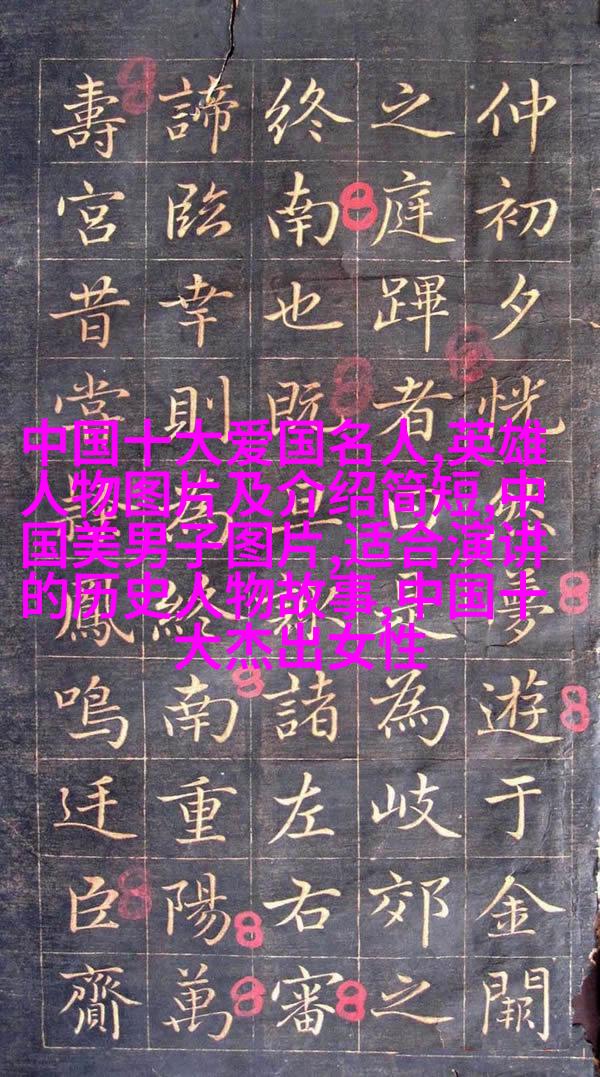 仲初夕恍然夢遊于金闕
之庭蹕者為岐郊之
終南也既諸左右審
諦臨幸則為終南重陽萬
壽宮昔嘗鳳鳴迂臣齎
中国十大爱国名人,英雄
人物图片及介绍简短,中
国美男子图片,适合演讲
的历史人物故事,中国十
大杰出女性